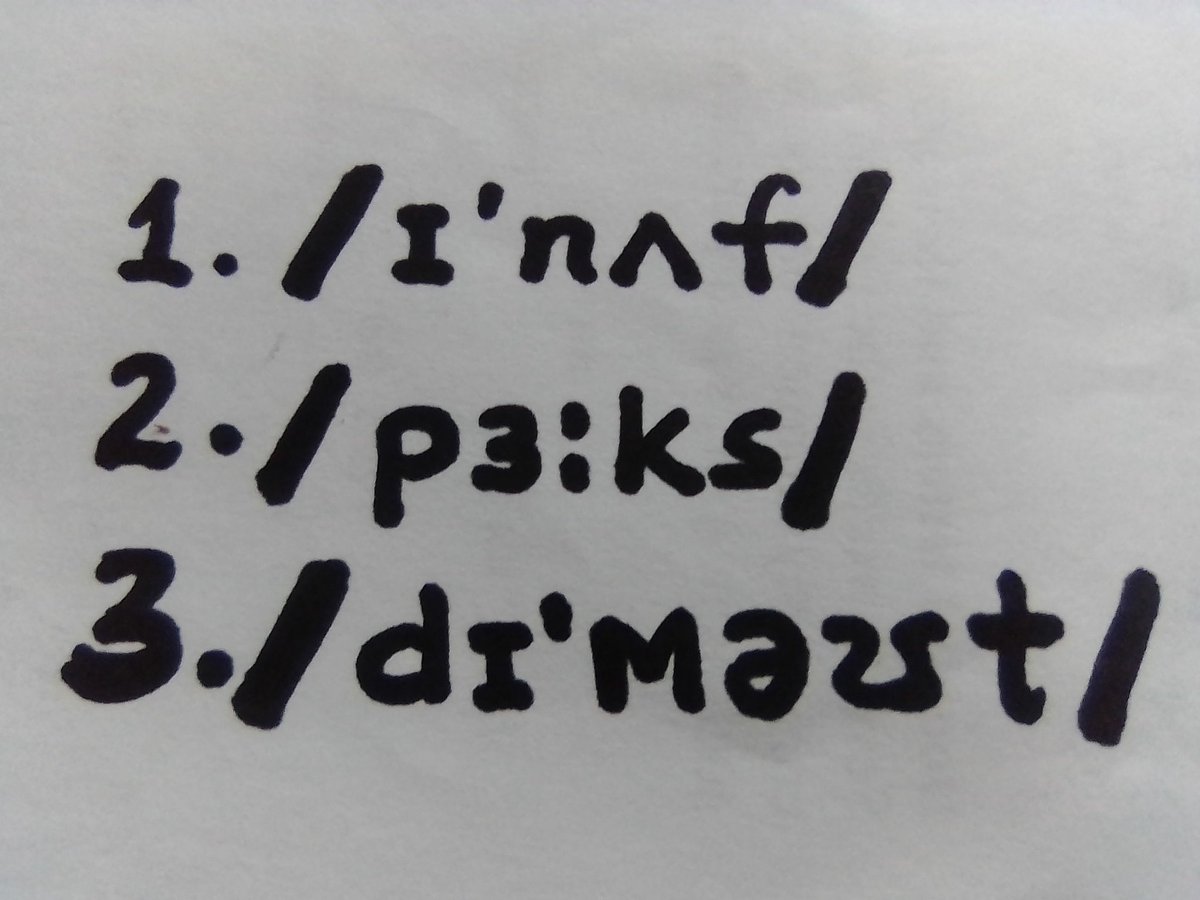 1. /ɪ'nʌf/
2. /pɜ:ks/
3. /dɪ'məʊt/